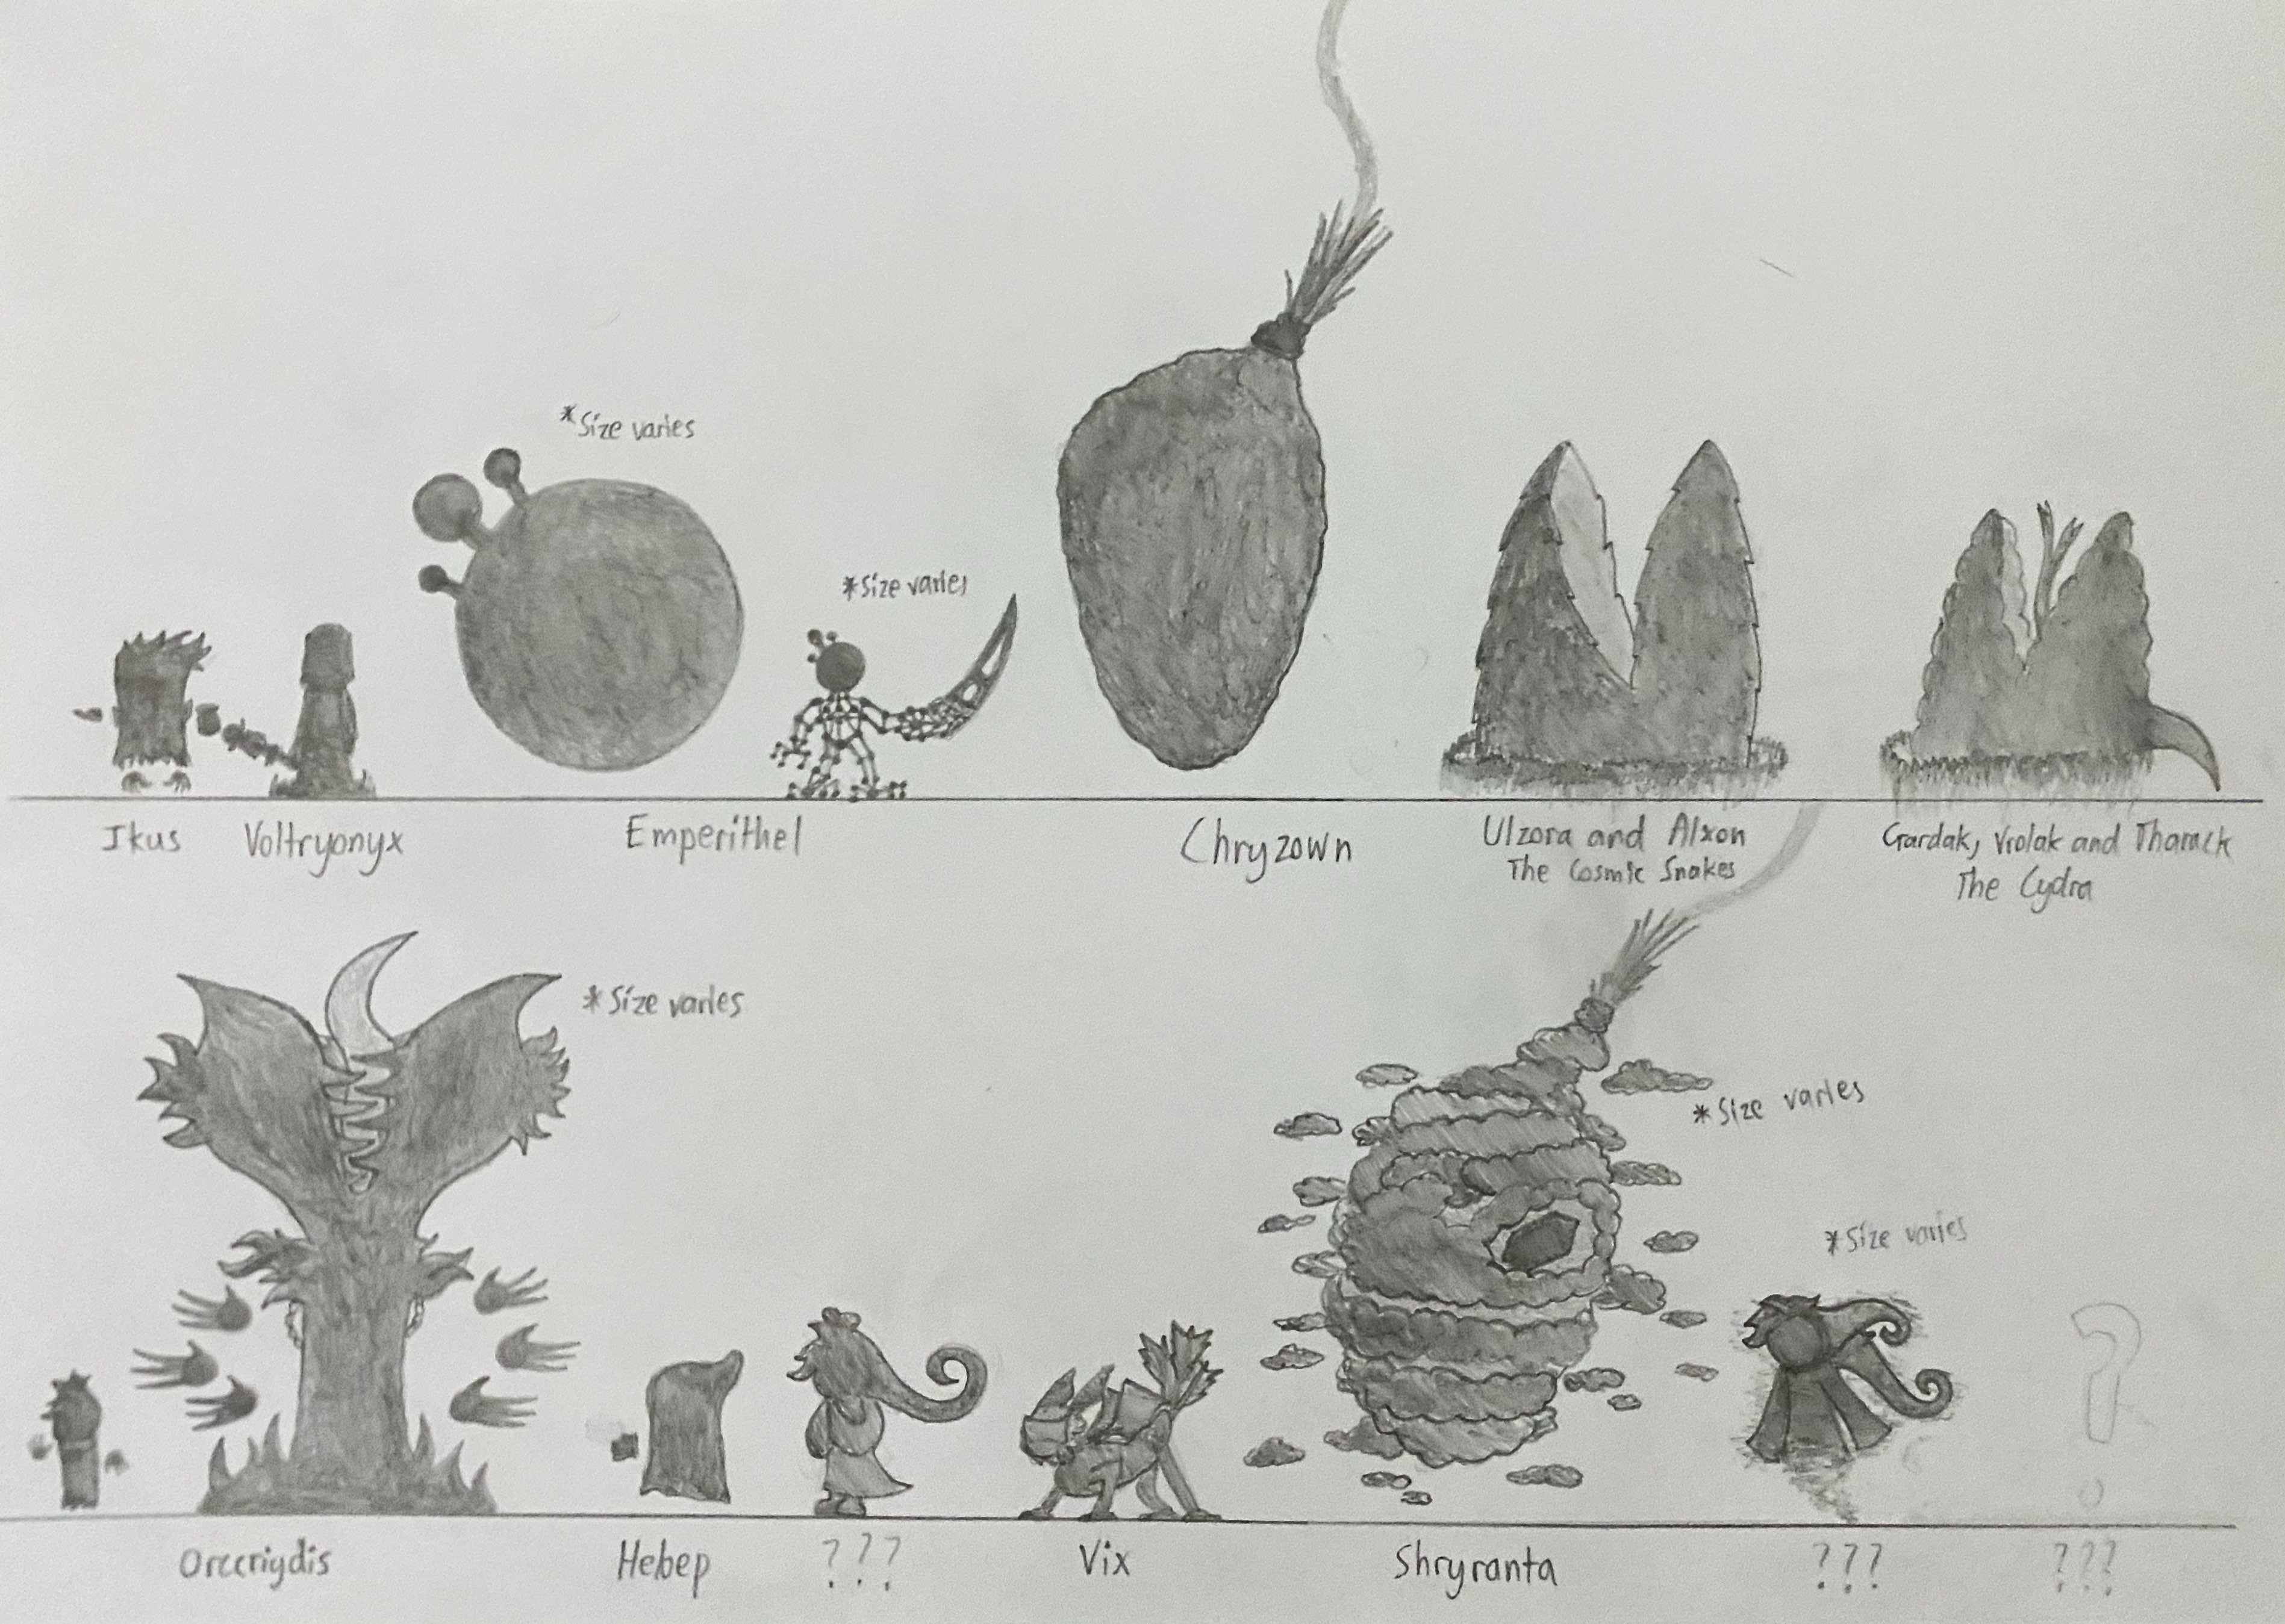 *Size varies
*Size varies
Ikus
Voltryonyx
Emperithel
Chryzown
Ulzora and Alxon
The Cosmic Snakes
Gardak, Vrolak and Tharack
The Cydra
*Size varies
*Size varies
*Size varies
Orccriydis
Hebep
???
Vix
Shryranta
???
???